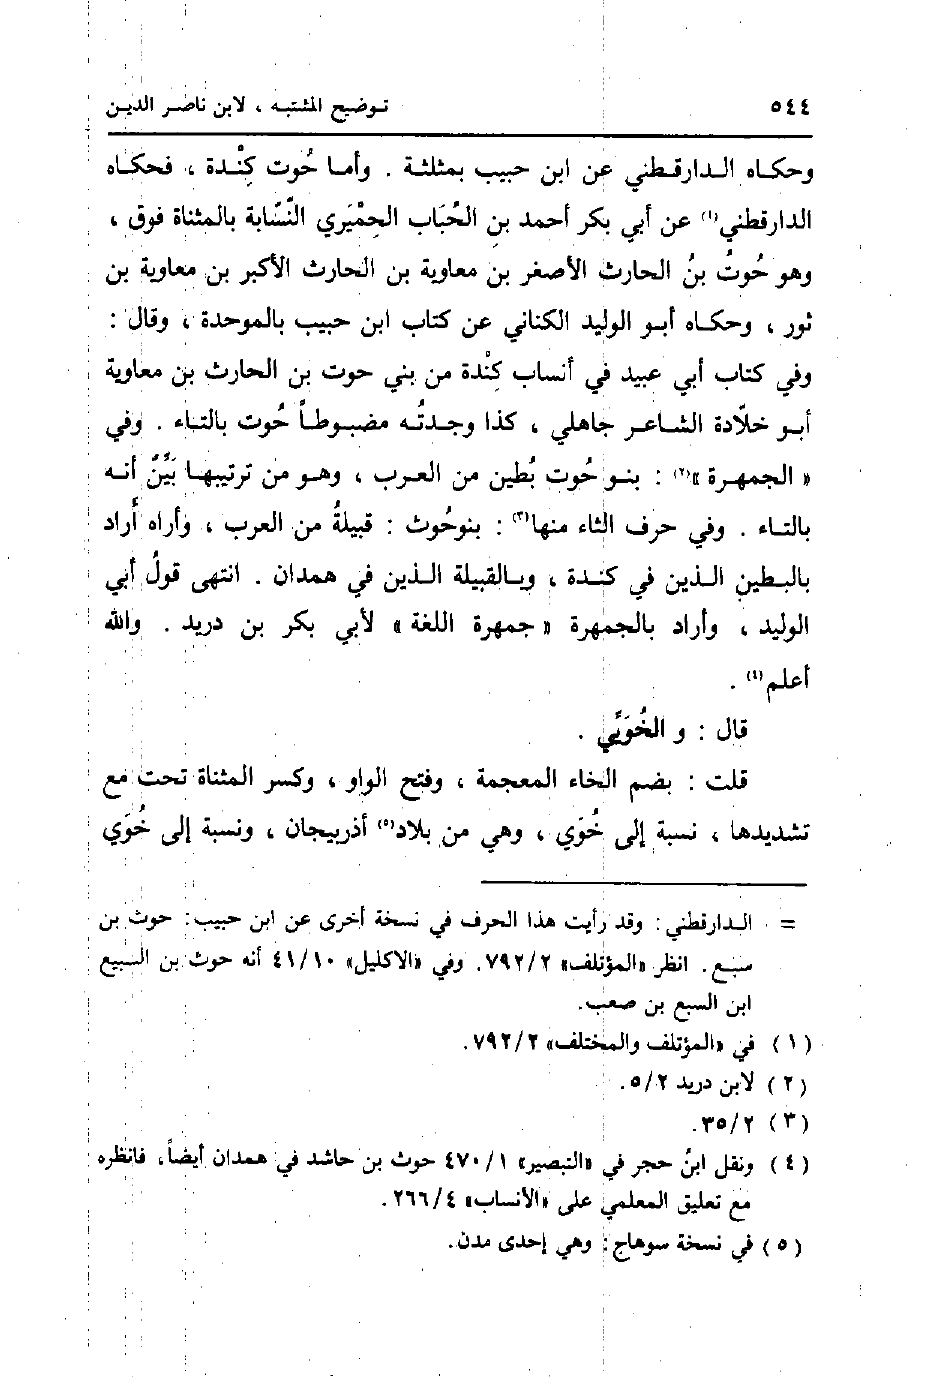 ٥٤٤
تـوضيح المشتبه ، لابن ناصر الديـن
وحكـاه الـدارقـطني عن ابن حبيب بمثلثة . وأمـا حُوت كِنْدة ، فحكـاه
الدارقطني(١) عن أبي بكر أحمد بن الحُبَاب الحِمْيَري النَّسّابة بالمثناة فوق ،
وهو حُوتُ بنُ الحارث الأصغر بن معاوية بن الحارث الأكبر بن معاوية بن
ثور ، وحكـاه أبـو الوليد الكناني عن كتاب ابن حبيب بالموحدة ، وقال :
وفي كتاب أبي عبيد في أنساب كِنْدة من بني حوت بن الحارث بن معاوية
أبـو خلّادة الشـاعـر جاهلي ، كذا وجـدتُـه مضبـوطـاً حُوت بالتـاء . وفي
« الجمهـرة »(٢) : بنـو حُوت بُطين من العـرب ، وهـو من ترتيبهـا بَيِّنٌ أنـه
بالتـاء . وفي حرف الثاء منها(٣) : بنوحُوث : قبيلةُ من العرب ، وأراه أراد
بالبـطين الـذين في كنـدة ، وبـالقبيلة الـذين في همدان . انتهى قولُ أبي
الوليد ، وأراد بالجمهرة « جمهرة اللغة » لأبي بكر بن دريد . والله
أعلم(٤) .
قال : و الخُوَيِّي .
قلت : بضم الخاء المعجمة ، وفتح الواو ، وكسر المثناة تحت مع
تشديدها ، نسبة إلى خُوَي ، وهي من بلاد(٥) أذربيجان ، ونسبة إلى خُوَي
= الـدارقطني: وقد رأيت هذا الحرف في نسخة أخرى عن ابن حبيب: حوث بن
سبع. انظر «المؤتلف» ٧٩٢/٢. وفي «الاكليل» ٤١/١٠ أنه حوث بن السبيع
ابن السبع بن صعب.
(١) في «المؤتلف والمختلف» ٧٩٢/٢.
(٢) لابن دريد ٥/٢.
(٣) ٣٥/٢.
(٤) ونقل ابنُ حجر في «التبصير» ٤٧٠/١ حوث بن حاشد في همدان أيضاً، فانظره
مع تعليق المعلمي على «الأنساب» ٢٦٦/٤.
(٥) في نسخة سوهاج: وهي إحدى مدن.